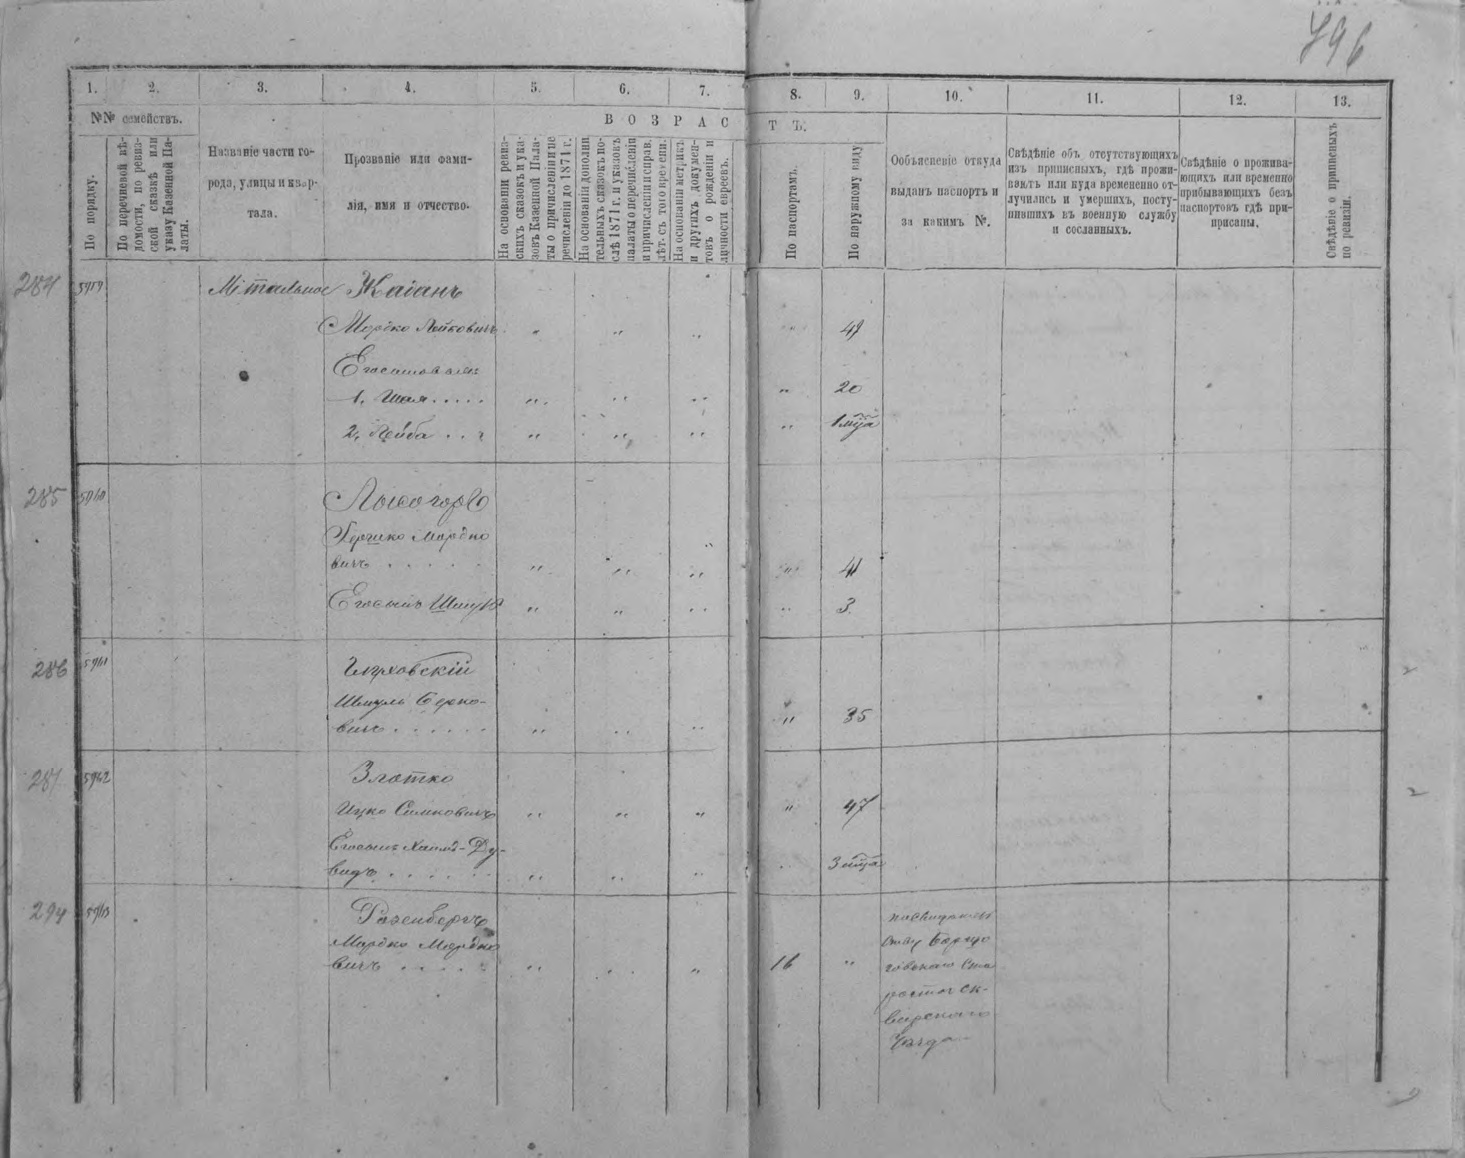 496
1. 2. 3. 4. 5. 6. 7. 8. 9. 10. 11. 12. 13.
№№ семействъ.
ВОЗРАСТЪ.
По порядку.
По перечневой вѣ-
домости, по ревиз-
ской сказкѣ или
указу Казенной Па-
латы.
Названіе части го-
рода, улицы и квар-
тала.
Прозваніе или фами-
лія, имя и отчество.
На основаніи ревиз-
скихъ сказокъ и ука-
зовъ Казенной Пала-
ты о причисленіи и пе
речисленіи до 1871 г.
На основаніи дополни
тельныхъ сказокъ по-
слѣ 1871 г. и указовъ
палаты о перечисленіи
и причисленіи и справ.
лѣт. съ того времени.
На основаніи метрикъ
и другихъ докумен-
товъ о рожденіи и
личности евреевъ.
По паспортамъ.
По наружному виду
Объясненіе откуда
выданъ паспортъ и
за какимъ №.
Свѣдѣніе объ отсутствующихъ
изъ приписныхъ, гдѣ прожи-
ваютъ или куда временено от-
лучились и умершихъ, посту-
пившихъ въ военную службу
и сосланныхъ.
Свѣдѣніе о прожива-
ющихъ или временно
прибывающихъ безъ
паспортовъ гдѣ при-
писаны.
Свѣдѣніе о приписныхъ
по ревизіи.
284 Каганъ
Мордко Лейковичъ " " " " 49
1. Шая . . . . . " " " " 20
2. Лейба . . " " " "
285
Гершко Мордко
вичъ . . . . . " " " " 41
Егосынъ Шмуль " " " " 3
286
Шмуль Берко-
вичъ . . . . . . " " " " 35
287 Златко
Ицко Симковичъ " " " " 47
Егосынъ Хаимъ-Ду-
видъ . . . . . " " " 3
294 Розенбергъ
Мордко Мордко
вичъ . . . . . " " " 16 "
старосты Ск-
вирскаго
Уѣзда